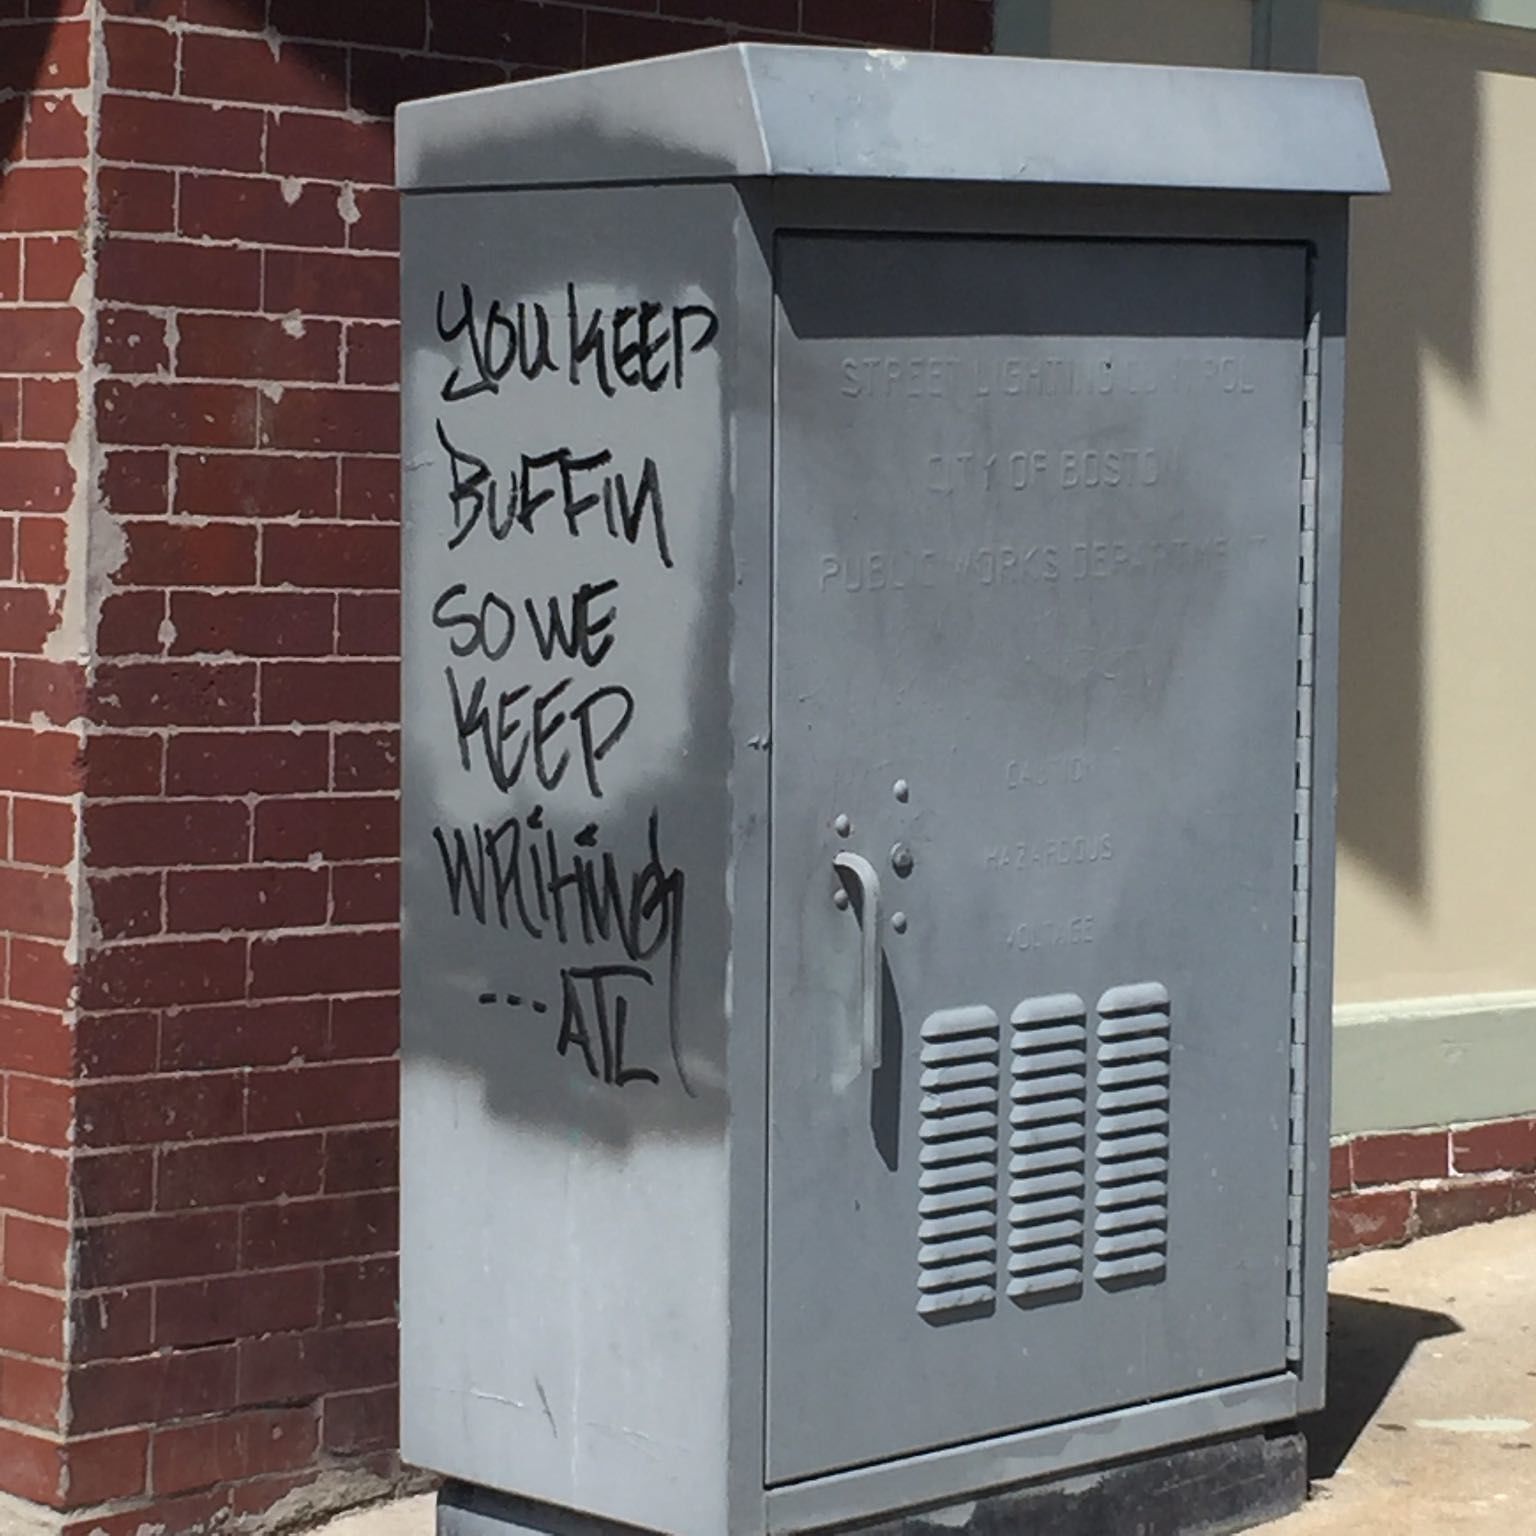 YOU KEEP
BUFFIN
SO WE
KEEP
WRiTiNG
--- ATL
STREET LIGHTING CONTROL
CITY OF BOSTON
PUBLIC WORKS DEPARTMENT
CAUTION
HAZARDOUS
VOLTAGE